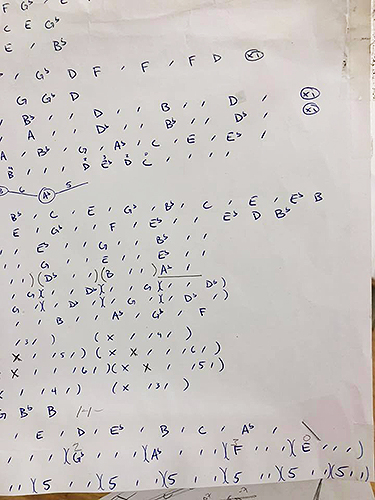 F G♭ E
C E G♭
E , B♭
, G♭ D F , F , F D (x1)
G G♭ D (x1)
, B♭ , , D , , B , , D , (x1)
, A , , D♭ , , B♭ , , D♭ ,
A , B♭ , G , A♭ , C , E , E♭ ,
B , , , D E♭ D C , , , ,
6 A♭ 5
B♭ , C , E , G♭ , B♭ , C , E , E♭ B
E , G♭ , , F , E♭ , , , E♭ D B♭
, , E♭ , , G , , B♭ , ,
, , G , , E , , E♭ , ,
, , )(D♭ , , )(B , , )A♭ ,
, G)( , , D♭)( , , G)( , , D♭)
G , )( , D♭ , )( , G , )( , D♭ , )
, , B , , A♭ , G♭ , F
, 3 , ) ( x , , 4 , )
x , , 5 , ) ( x x , , 6 , )
x , , , 6 , )( x x , , , 5 , )
x , , 4 , ) ( x , 3 , )
G B♭ B H-
, E , D , E♭ , B , C , A♭ ,
, , )(G♭ , , )(A♭ , , )(F , , )(E , , )
, , )(5 , , )(5 , , )(5 , , )(5 , , )(5 , , )(5 , )